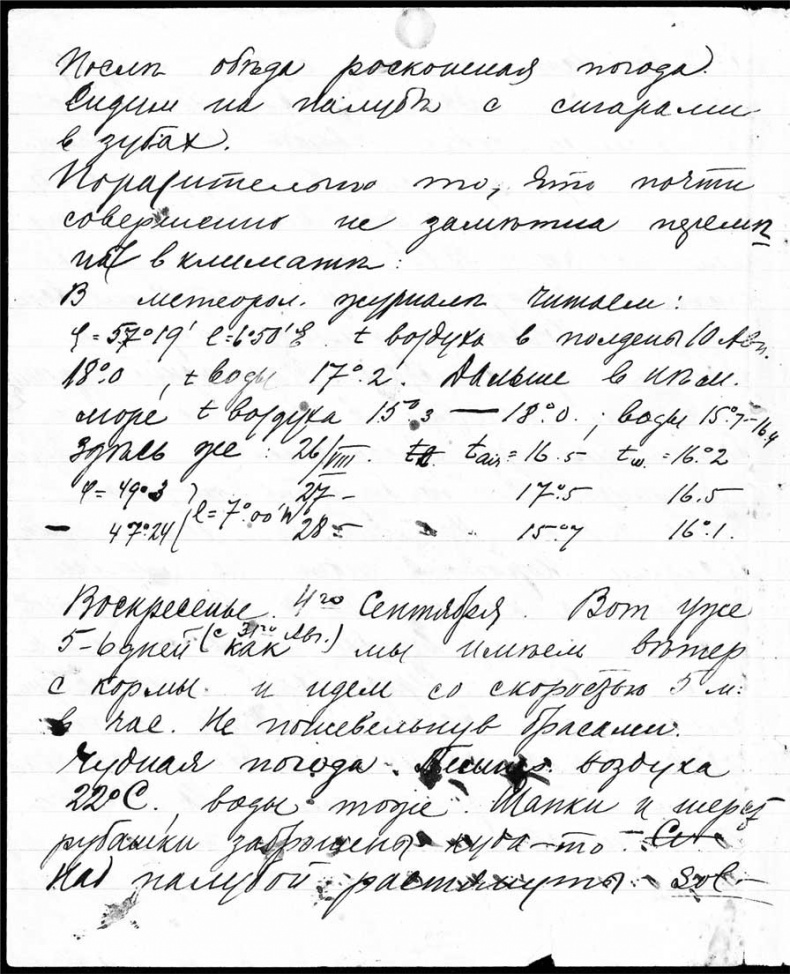 Послѣ обѣда роскошная погода.
Сидим на палубѣ с сигарами
в зубах.
Поразительно то, что почти
совершенно не замѣтна перемѣ
на в климатѣ:
В метеорол. журналѣ читаем:
φ = 57°19' l = 6°50' t воздуха в полдень 10 Авг.
18°.0, t воды 17°.2. Дальше в Нѣм.
море t воздуха 15°.3 — 18°.0.; воды 15°.7–16.4
Здѣсь же: 26/VIII. t air = 16.5 t w. = 16°.2
φ = 49°.3 27 – 17°.5 16.5
– 47°.24 l = 7°.00'W 28 – 15°.7 16°.1.
Воскресенье 4го Сентября. Вот уже
5–6 дней (с Авг.) как мы имѣем вѣтер
с кормы и идем со скоростью 5 м.
в час. Не пошевельнув брасами.
Чудная погода. воздуха
22°C, воды тоже. Шапки и шерст
рубашки заброшены куда-то –
Над палубой растянуты sol–